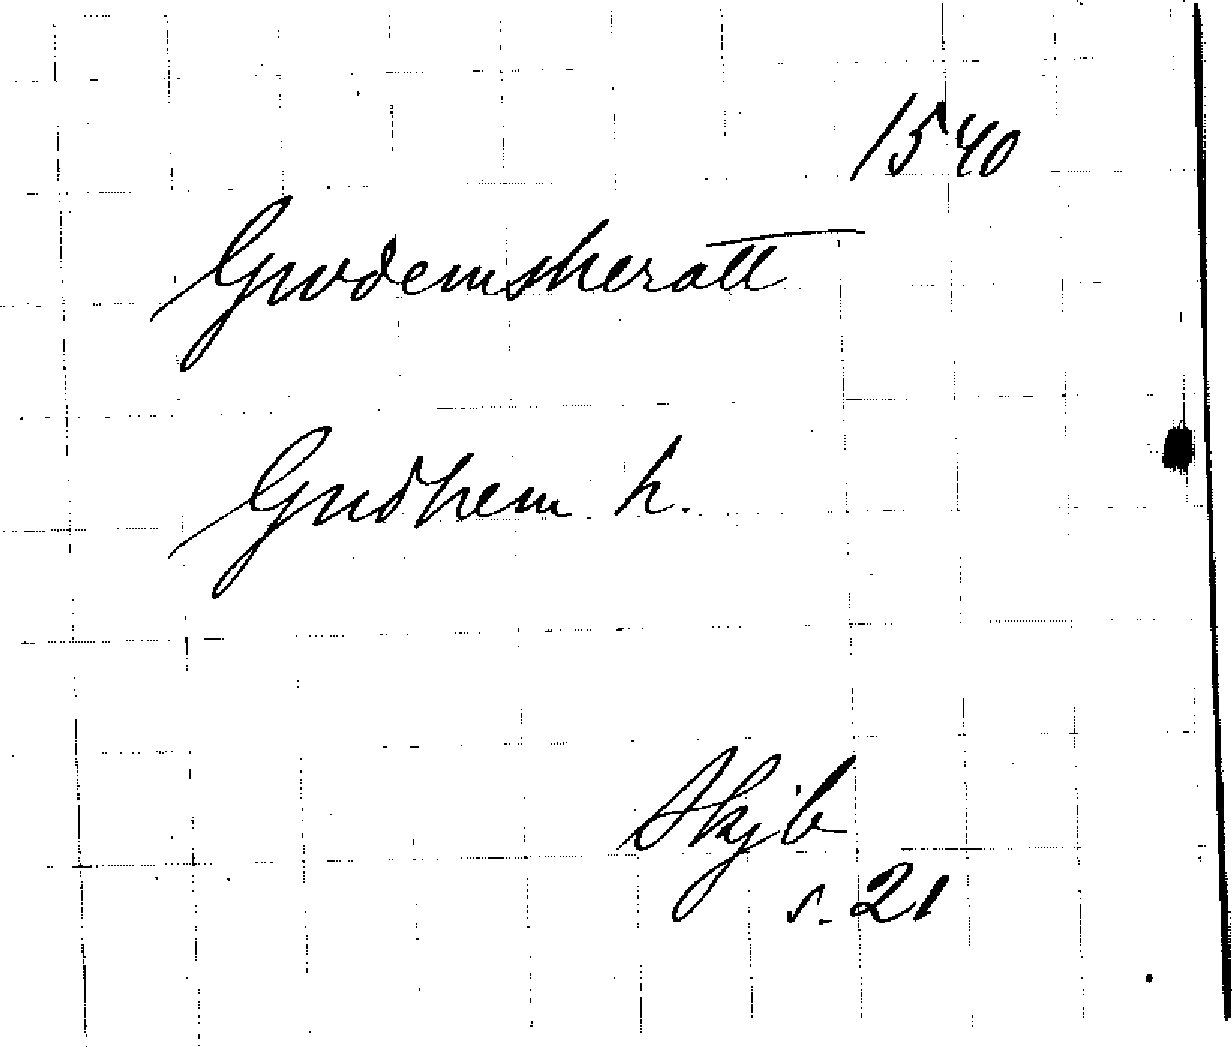 1540
Gwdemsheratt
Gudhem h.
Skjb
s. 21